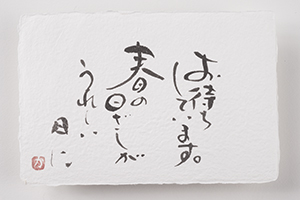 お待ち
しています。
春の
日ざしが
うれしい
日に